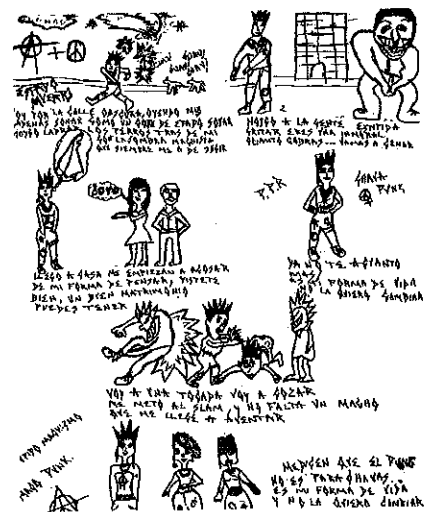 GUAU!
GUAU!
GUAU!
ESTOY
MUERTO
VOY POR LA CALLE OBSCURA, OYENDO MIS
CADENAS SONAR COMO UN GOLPE DE ESTADO SONAR
OIGO LADRAR LOS PERROS TRAS DE MI
SON LA SOMBRA MACHISTA
QUE SIEMPRE ME A DE SEGIR
2
OIGO A LA GENTE
GRITAR ERES TAN INMORAL
CUANTO COBRAS... VAMOS A CENAR
ESTUPIDA
¡BODA!
LLEGO A CASA ME EMPIEZAN A ACOSAR
DE MI FORMA DE PENSAR, VISTETE
BIEN, UN BIEN MATRIMONIO
PUEDES TENER
CHAVA
PUNK
YA NO TE AGUANTO
MAS
ES MI FORMA DE VIDA
Y LA QUIERO CAMBIAR
VOY A UNA TOCADA VOY A GOZAR
ME METO AL SLAM Y NO FALTA UN MACHO
QUE ME LLEGE A AVENTAR
MACHISMO
PUNK.
ME DICEN QUE EL PUNK
NO ES PARA CHAVAS..
ES MI FORMA DE VIDA
Y NO LA QUIERO CAMBIAR